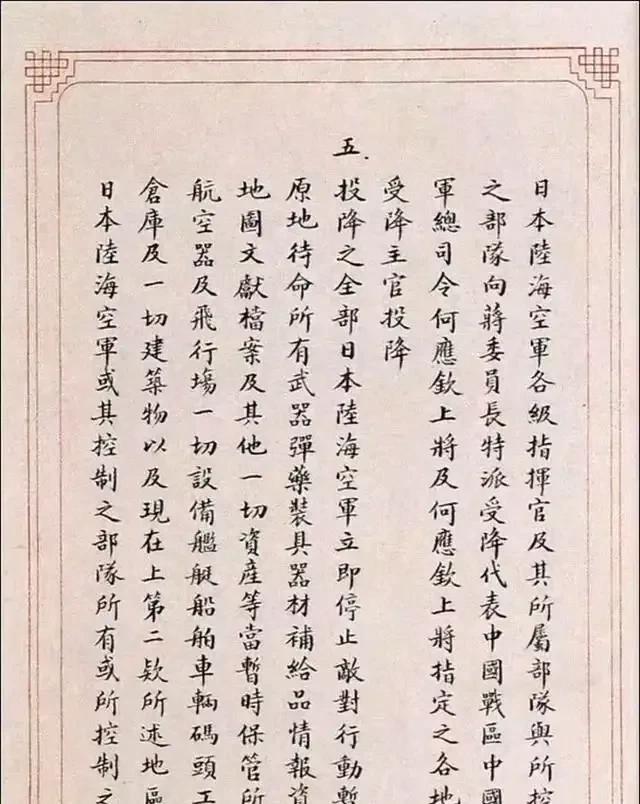 日本陸海空軍各級指揮官及其所屬部隊與所控
之部隊向蔣委員長特派受降代表中國戰區中國
軍總司令何應欽上將及何應欽上將指定之各地
受降主官投降
五.投降之全部日本陸海空軍立即停止敵對行動暫
原地待命所有武器彈藥裝具器材補給品情報資
地圖文獻檔案及其他一切資產等當暫時保管所
航空器及飛行場一切設備艦艇船舶車輛碼頭工
倉庫及一切建築物以及現在上第二款所述地區
日本陸海空軍或其控制之部隊所有或所控制之